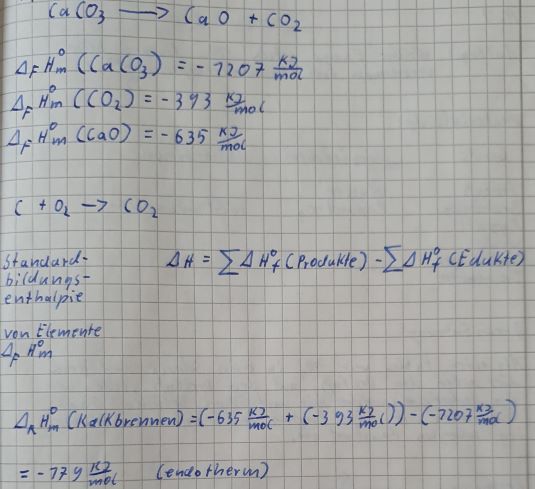 CaCO₃ ⟶ CaO + CO₂
ΔFH⁰m (CaCO₃) = -1207 KJ/mol
ΔFH⁰m (CO₂) = -393 KJ/mol
ΔFH⁰m (CaO) = -635 KJ/mol
C + O₂ → CO₂
Standard-
bildungs-
enthalpie
ΔH = ∑ΔH⁰f (Produkte) - ∑ΔH⁰f (Edukte)
von Elemente
ΔFH⁰m
ΔRH⁰m (Kalkbrennen) = (-635 KJ/mol + (-393 KJ/mol)) - (-1207 KJ/mol)
= -179 KJ/mol (endotherm)